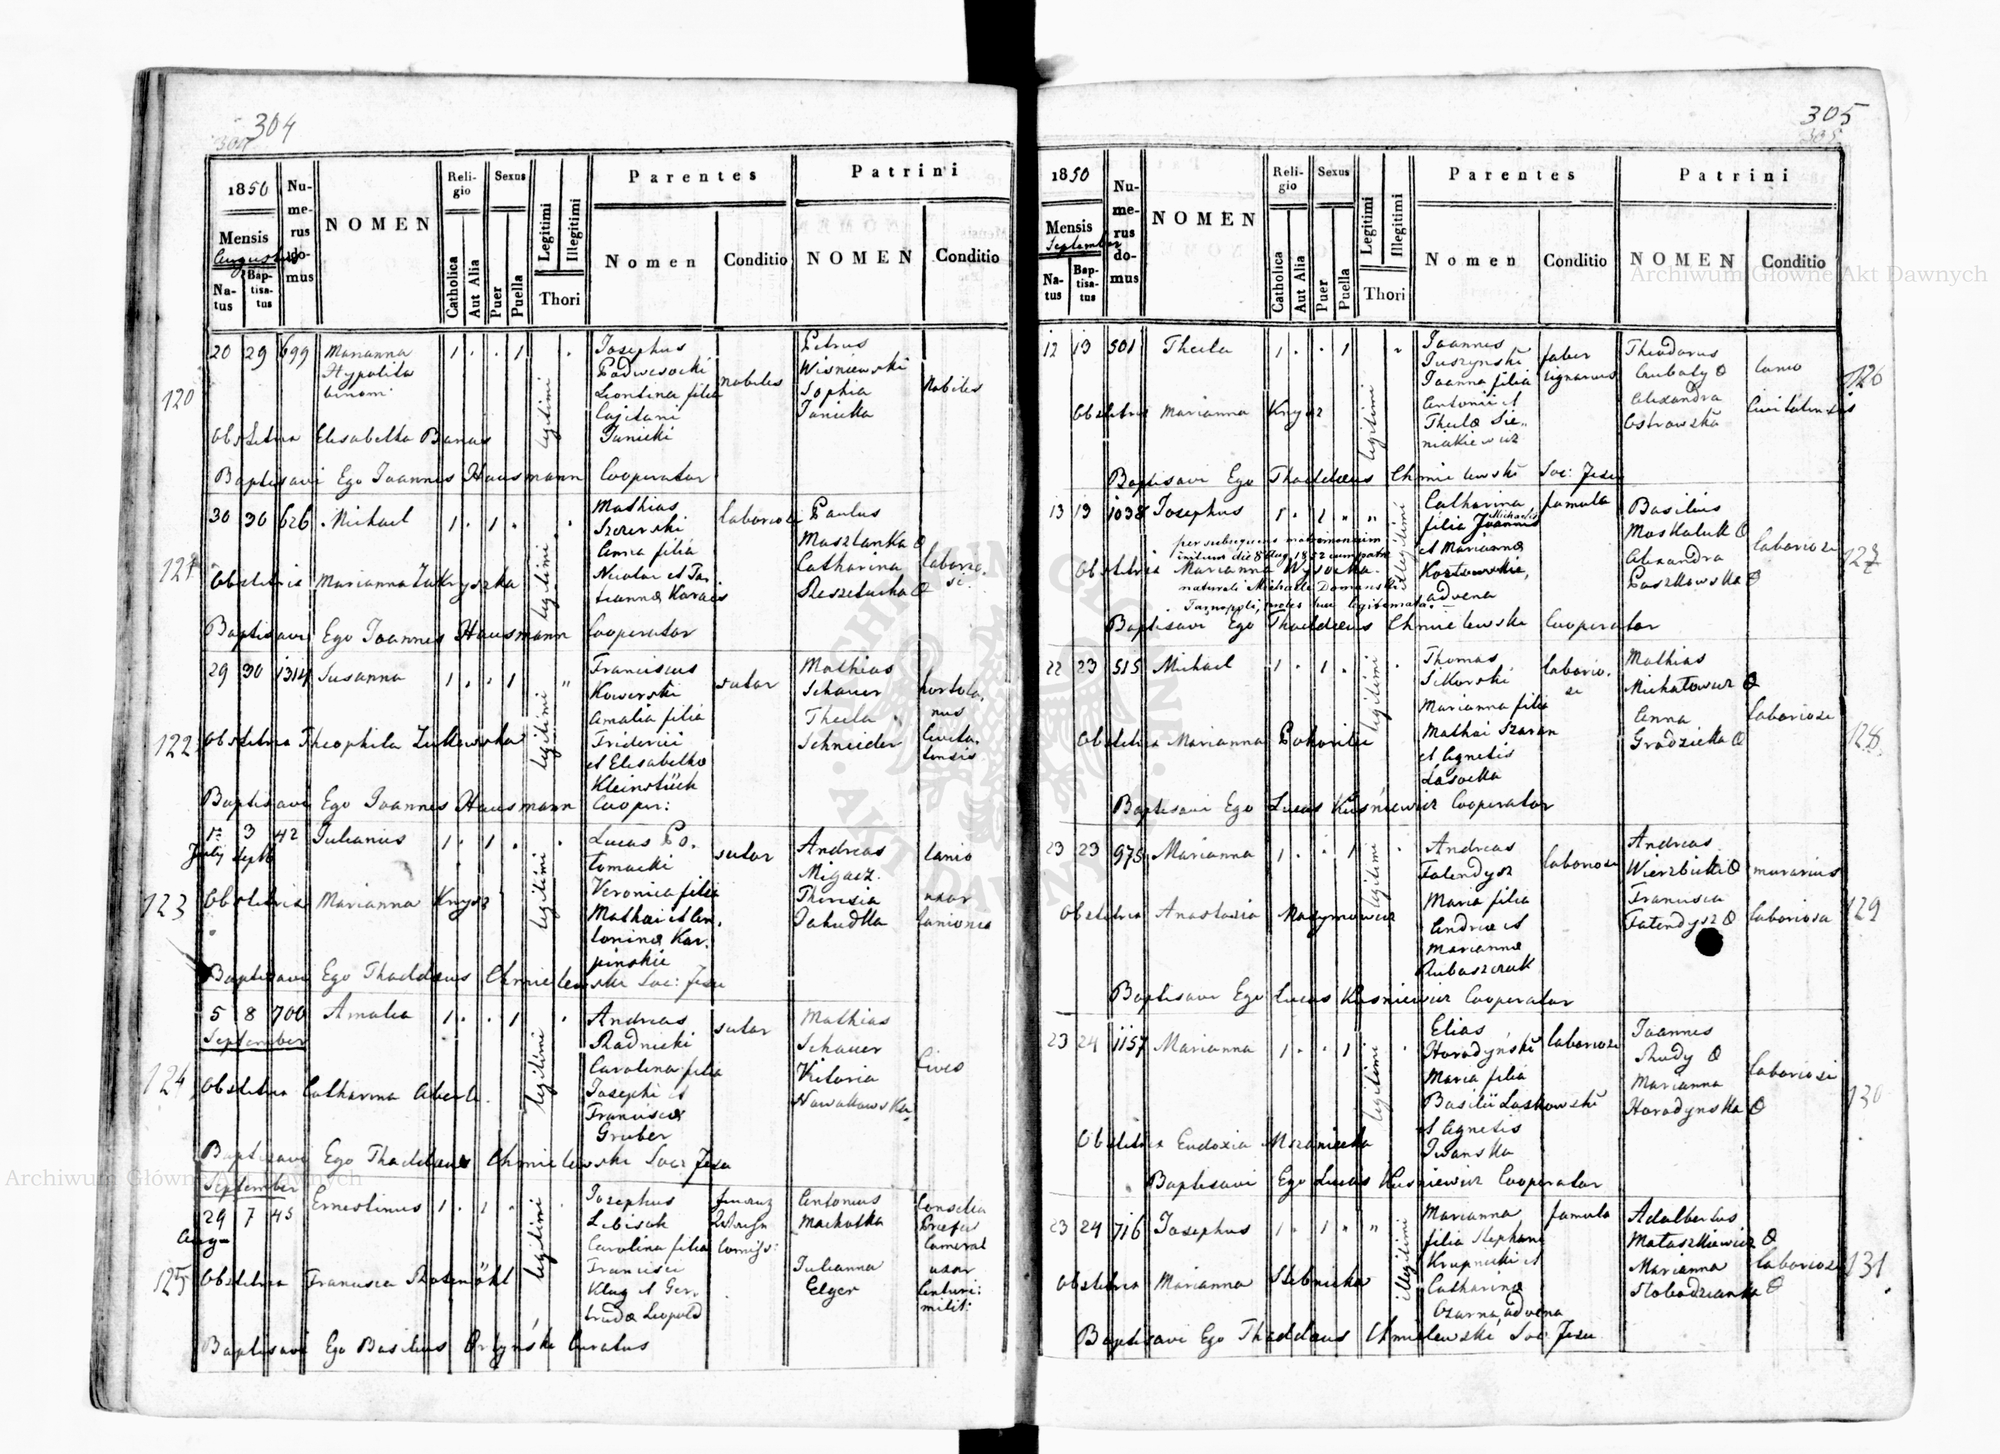 304
305
1850
Mensis
Augustus
Natus
Baptisatus
Numerus domus
NOMEN
Religio
Catholica
Aut Alia
Sexus
Puer
Puella
Legitimi
Illegitimi
Thori
Parentes
Nomen
Conditio
Patrini
NOMEN
Conditio
120
20 29 699 Marianna 1 . . 1 legitimi . Josephus Petrus
Hypolita Wiśniewski
binomi Leontina filia nobiles Sophia Nobiles
Cajetani Janicka
Obstetrix Elisabetha Banas Janicki
Baptisavi Ego Joannes Hausmann Cooperator
121
30 30 626 Michael 1 . 1 . legitimi . Mathias laboriosi Paulus
Anna filia Catharina laborio-
Obstetrix Marianna Zakryszka Nicolai et Ta- si
Baptisavi Ego Joannes Hausmann Cooperator
122
29 30 1314 Susanna 1 . . 1 legitimi " Franciscus sutor Mathias
Kowerski Schauer hortola-
Amalia filia Thecla nus
Obstetrix Theophila Friderici Schneider Civita-
et Elisabetha tensis
Kleinstück
Baptisavi Ego Joannes Hausmann Cooper:
123
1a 3 42 Julianus 1 . 1 . legitimi . Lucas Po- sutor Andreas lanio
July Septb tomacki Migasz
Veronica filia Theresia uxor
Obstetrix Marianna Knysz Mathai et An- lanionis
toninæ Kar-
pinskie
Baptisavi Ego Thaddæus Chmielewski Soc: Jesu
124
5 8 700 Amalia 1 . . 1 legitimi . Andreas sutor Mathias
September Radnicki Schauer
Carolina filia Victoria Cives
Obstetrix Catharina Aberle Josephi et Nowakowska
Franciscæ
Gruber
Baptisavi Ego Thaddæus Chmielewski Soc: Jesu
125
September
29 7 45 Ernestinus 1 . 1 . legitimi Josephus Antonius
Aug Carolina filia Comiss: Cameral
Obstetrix Francisca Francisci Julianna uxor
Klug et Ger- Elger
trudæ Leopold milit:
Baptisavi Ego Basilius Curatus
1850
Mensis
September
Natus
Baptisatus
Numerus domus
NOMEN
Religio
Catholica
Aut Alia
Sexus
Puer
Puella
Legitimi
Illegitimi
Thori
Parentes
Nomen
Conditio
Patrini
NOMEN
Conditio
126
12 13 501 Thecla 1 . . 1 legitimi " Joannes faber Theodorus lanio
Tuszyński lignarius
Joanna filia Alexandra Civitatensis
Obstetrix Marianna Knysz Antonii et Ostrowska
Theclæ Sie-
niakiewicz
Baptisavi Ego Thaddæus Chmielewski Soc: Jesu
127
13 13 1038 Josephus 1 . 1 " " illegitimi Catharina famula Basilius
filia Joannis Michaelis Moskaluk
per subsequens matrimonium et Mariannæ Alexandra laboriosi
initum die 8 Aug 1852 cum patre Kozłowskie, Paszkowska
Obstetrix Marianna Wysocka advena
naturali Michaele Domanski
Tarnopoli, proles hæc legitimata.
Baptisavi Ego Thaddæus Chmielewski Cooperator
128
22 23 515 Michael 1 . 1 . legitimi . Thomas laborio- Mathias
Sikorski si Michałowicz
Marianna filia Anna laboriosi
Obstetrix Marianna Mathai Szaran Gradzicka
et Agnetis
Lasocka
Baptisavi Ego Lucas Kuśniewicz Cooperator
129
23 23 975 Marianna 1 . . 1 legitimi . Andreas laboriosi Andreas
Falendysz Wierzbicki murarius
Maria filia Francisca
Obstetrix Anastasia Maxymowicz Andreæ et Falendysz laboriosa
Mariannæ
Rubaszczuk
Baptisavi Ego Lucas Kuśniewicz Cooperator
130
23 24 1157 Marianna 1 . . 1 legitimi . Elias laboriosi Joannes
Horodyński Rudy
Maria filia Marianna laboriosi
Basilii Laskowski Horodynska
Obstetrix Eudoxia Mszaniecka et Agnetis
Iwanska
Baptisavi Ego Lucas Kuśniewicz Cooperator
131
23 24 716 Josephus 1 . 1 " " illegitimi Marianna famula Adalbertus
filia Stephani Mataszkiewicz
Krupnicki et Marianna laboriosi
Obstetrix Marianna Stebnicka Catharinæ Słobodzianka
Czarna, advena
Baptisavi Ego Thaddæus Chmielewski Soc: Jesu
Archiwum Główne Akt Dawnych
Archiwum Główne Akt Dawnych
ARCHIWUM GŁÓWNE · AKT DAWNYCH ·